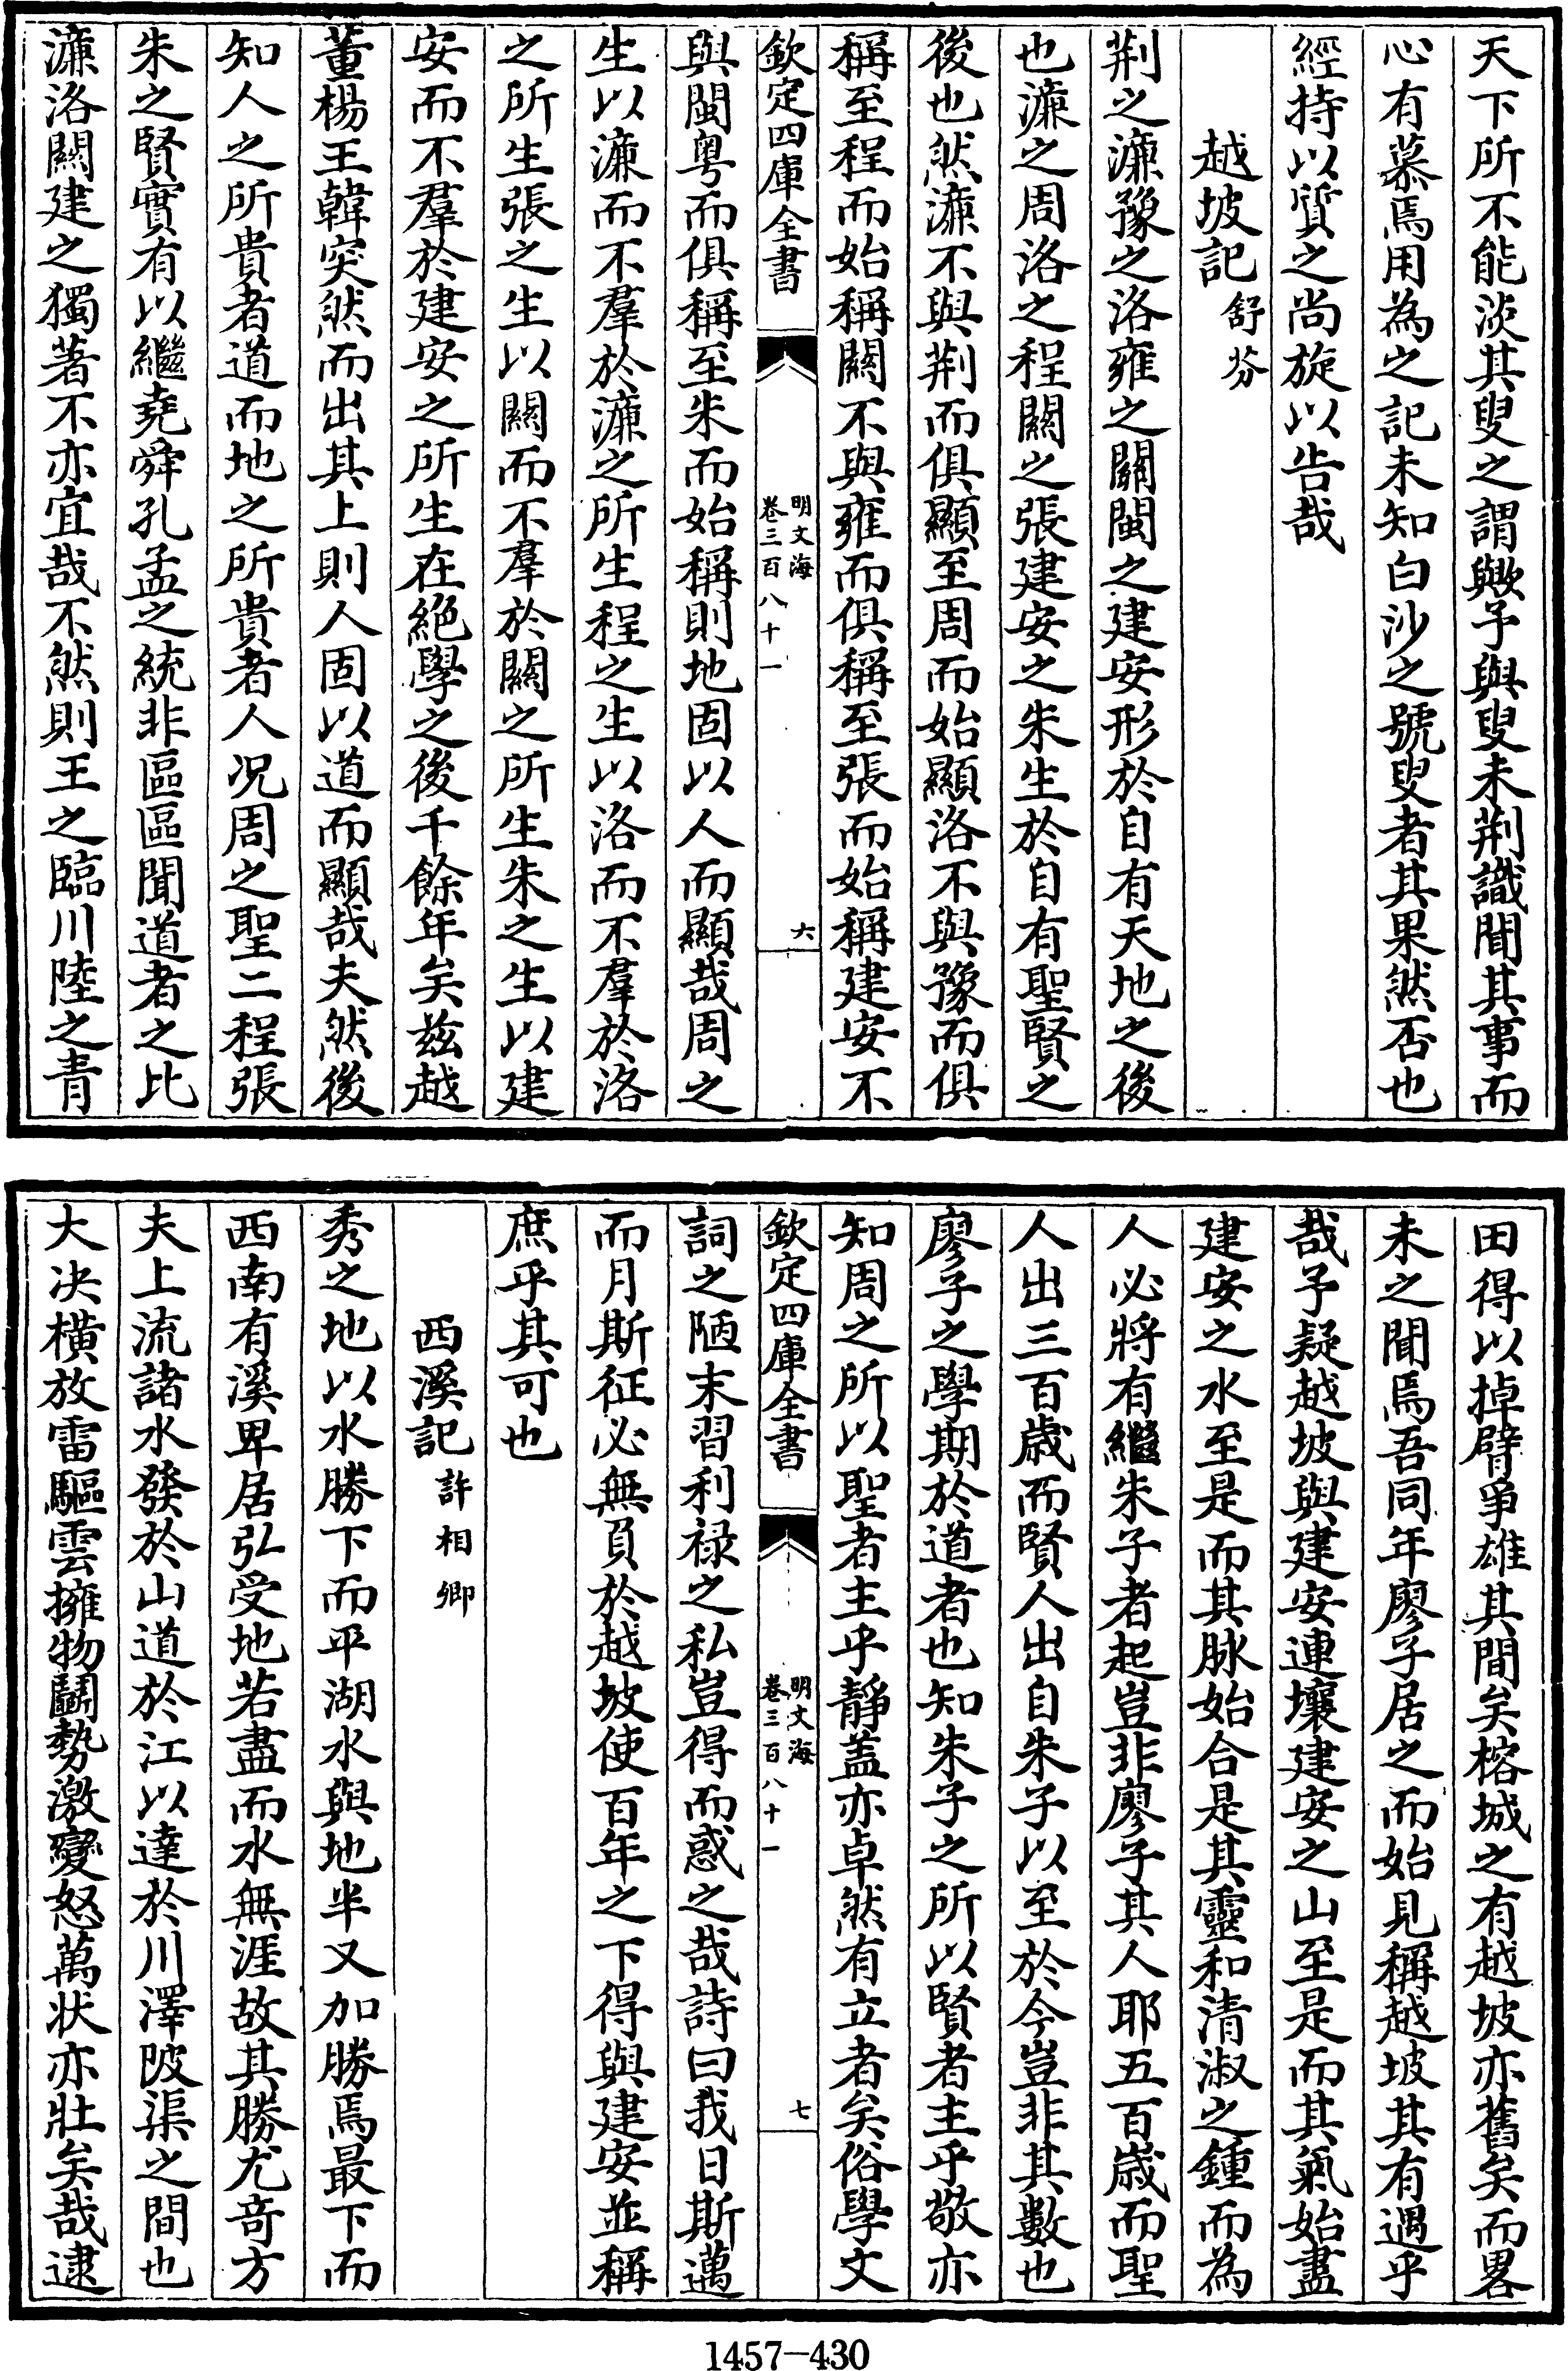 天下所不能淡其叟之謂歟予與叟未荆識聞其事而
心有慕焉用為之記未知白沙之號叟者其果然否也
經持以質之尚旋以告哉
越坡記 舒芬
荆之濓豫之洛雍之關閩之建安形於自有天地之後
也濓之周洛之程關之張建安之朱生於自有聖賢之
後也然濓不與荆而俱顯至周而始顯洛不與豫而俱
稱至程而始稱關不與雍而俱稱至張而始稱建安不
欽定四庫全書
明文海
卷三百八十一
六
與閩粤而俱稱至朱而始稱則地固以人而顯哉周之
生以濓而不羣於濓之所生程之生以洛而不羣於洛
之所生張之生以關而不羣於關之所生朱之生以建
安而不羣於建安之所生在絶學之後千餘年矣兹越
董楊王韓突然而出其上則人固以道而顯哉夫然後
知人之所貴者道而地之所貴者人况周之聖二程張
朱之賢實有以繼堯舜孔孟之統非區區聞道者之比
濓洛關建之獨著不亦宜哉不然則王之臨川陸之青
田得以掉臂爭雄其間矣榕城之有越坡亦舊矣而畧
未之聞焉吾同年廖子居之而始見稱越坡其有遇乎
哉予疑越坡與建安連壤建安之山至是而其氣始盡
建安之水至是而其脉始合是其靈和清淑之鍾而為
人必將有繼朱子者起豈非廖子其人耶五百歲而聖
人出三百歲而賢人出自朱子以至於今豈非其數也
廖子之學期於道者也知朱子之所以賢者主乎敬亦
知周之所以聖者主乎靜盖亦卓然有立者矣俗學文
欽定四庫全書
明文海
卷三百八十一
七
詞之陋末習利禄之私豈得而惑之哉詩曰我日斯邁
而月斯征必無負於越坡使百年之下得與建安並稱
庶乎其可也
西溪記 許相卿
秀之地以水勝下而平湖水與地半又加勝焉最下而
西南有溪卑居弘受地若盡而水無涯故其勝尤竒方
夫上流諸水發於山道於江以達於川澤陂渠之間也
大决横放雷驅雲擁物鬭勢激變怒萬状亦壯矣哉逮
1457—430